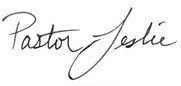 Pastor Leslie